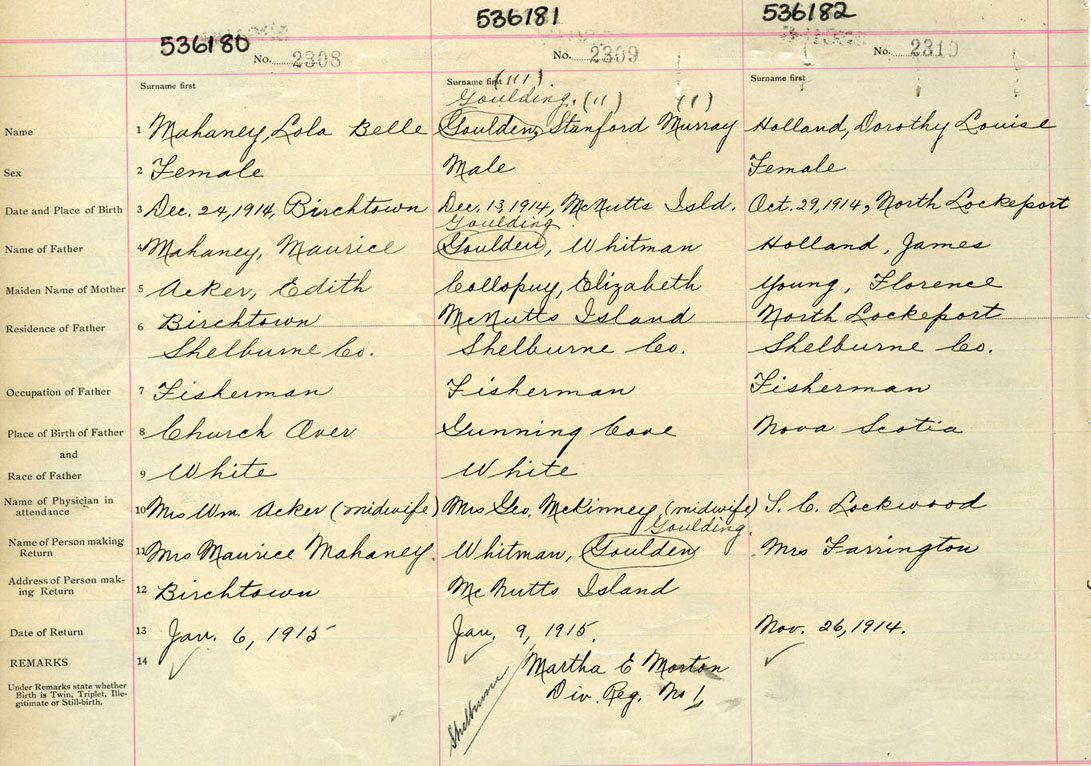 536180 536181 536182
No. 2308 No. 2309 No. 2310
Surname first Surname first (111) Surname first
Goulding. (11) (1)
Name 1 Mahaney, Lola Belle Goulden, Stanford Murray Holland, Dorothy Louise
Sex 2 Female Male Female
Date and Place of Birth 3 Dec. 24, 1914, Birchtown Dec. 13, 1914, McNutts Isld. Oct. 29, 1914, North Lockeport
Goulding
Name of Father 4 Mahaney, Maurice Goulden, Whitman Holland, James
Maiden Name of Mother 5 Acker, Edith Collopuy, Elizabeth Young, Florence
Residence of Father 6 Birchtown McNutts Island North Lockeport
Shelburne Co. Shelburne Co. Shelburne Co.
Occupation of Father 7 Fisherman Fisherman Fisherman
Place of Birth of Father 8 Church Over Gunning Cove Nova Scotia
and
Race of Father 9 White White
Name of Physician in
attendance 10 Mrs Wm. Acker (midwife) Mrs Geo. McKinney (midwife) S. C. Lockwood
Goulding
Name of Person making
Return 11 Mrs Maurice Mahaney Whitman, Goulden Mrs Farrington
Address of Person mak-
ing Return 12 Birchtown McNutts Island
Date of Return 13 Jan. 6, 1915 Jan. 9, 1915. Nov. 26, 1914.
REMARKS 14 Martha E Morton
Under Remarks state whether
Birth is Twin, Triplet, Ille-
gitimate or Still-birth.
Div. Reg. No 1
Shelburne